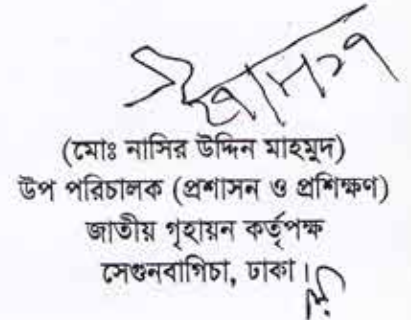 (মোঃ নাসির উদ্দিন মাহমুদ)
উপ পরিচালক (প্রশাসন ও প্রশিক্ষণ)
জাতীয় গৃহায়ন কর্তৃপক্ষ
সেগুনবাগিচা, ঢাকা।